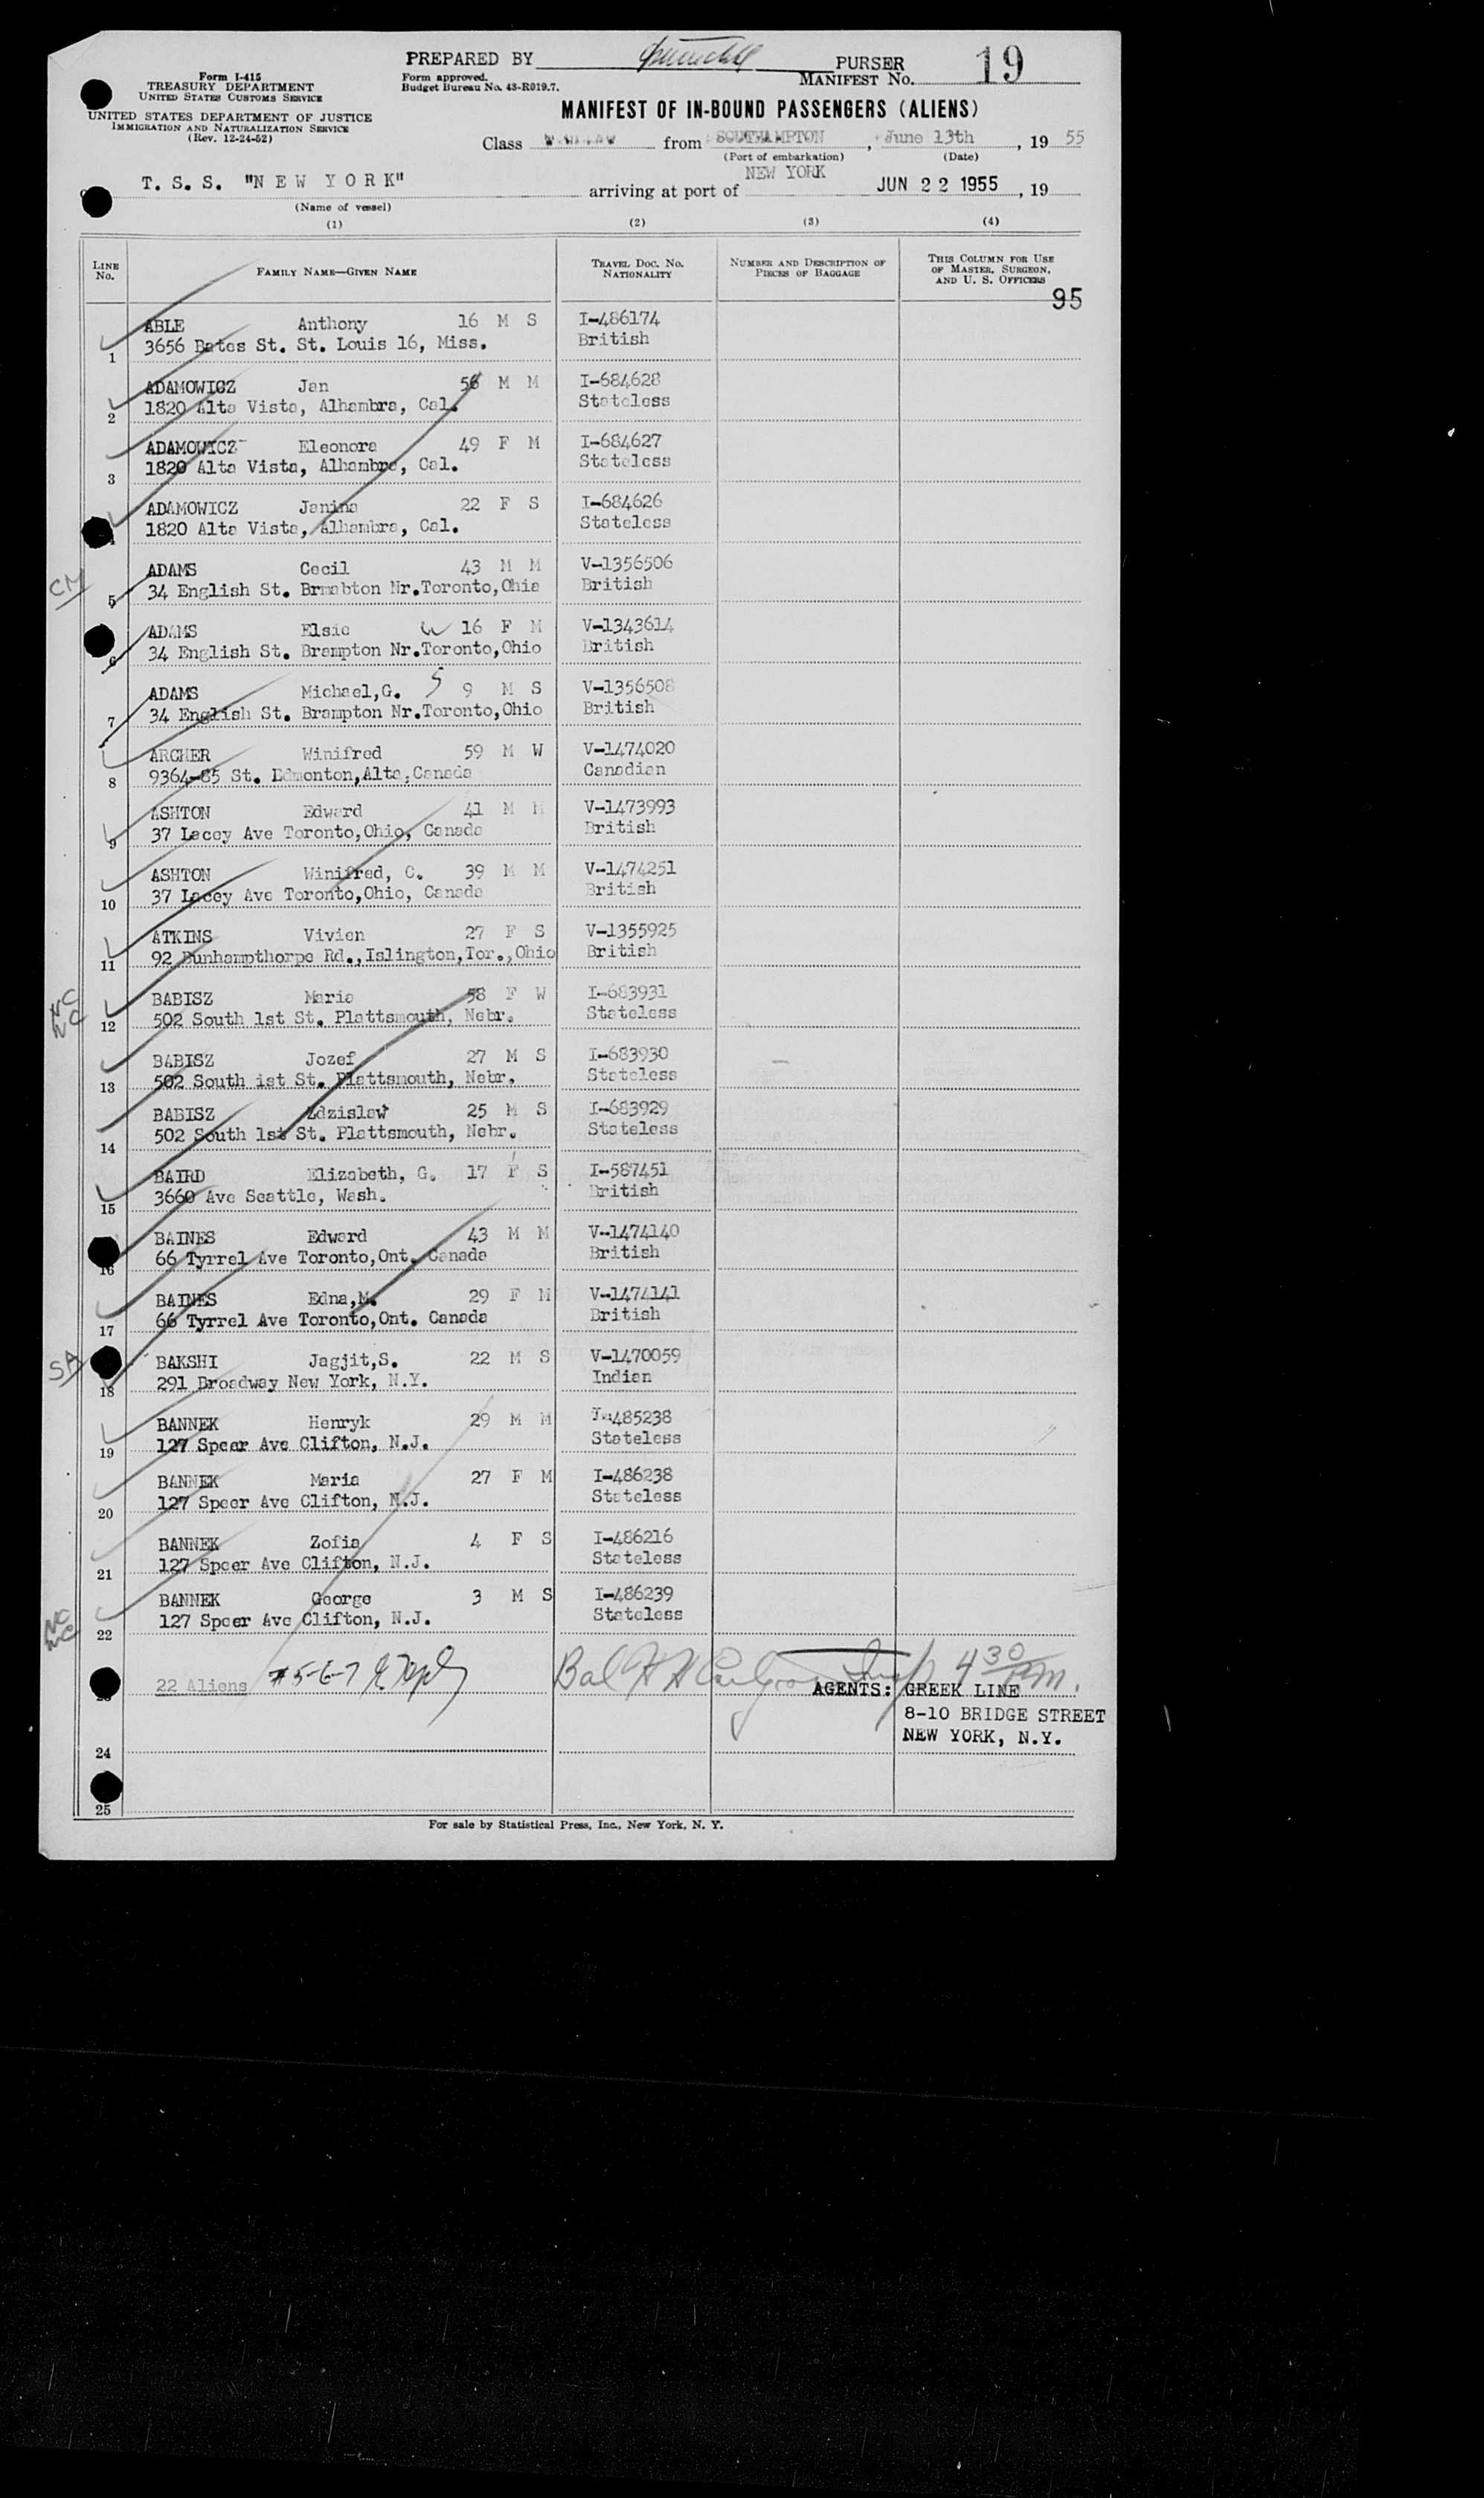 PREPARED BY PURSER
Form I-415
TREASURY DEPARTMENT
UNITED STATES CUSTOMS SERVICE
UNITED STATES DEPARTMENT OF JUSTICE
IMMIGRATION AND NATURALIZATION SERVICE
(Rev. 12-24-52)
Form approved.
Budget Bureau No. 43-R019.7.
MANIFEST No. 19
MANIFEST OF IN-BOUND PASSENGERS (ALIENS)
Class from SOUTHAMPTON, June 13th, 19 55
(Port of embarkation) (Date)
T. S. S. "N E W Y O R K" arriving at port of NEW YORK JUN 22 1955, 19
(Name of vessel)
(1) (2) (3) (4)
LINE No. FAMILY NAME—GIVEN NAME TRAVEL DOC. NO. NATIONALITY NUMBER AND DESCRIPTION OF PIECES OF BAGGAGE THIS COLUMN FOR USE OF MASTER, SURGEON, AND U. S. OFFICERS
95
ABLE Anthony 16 M S I-486174
1 3656 Bates St. St. Louis 16, Miss. British
ADAMOWICZ Jan 56 M M I-684628
2 1820 Alta Vista, Alhambra, Cal. Stateless
ADAMOWICZ Eleonora 49 F M I-684627
3 1820 Alta Vista, Alhambra, Cal. Stateless
ADAMOWICZ Janina 22 F S I-684626
1820 Alta Vista, Alhambra, Cal. Stateless
CM
ADAMS Cecil 43 M M V-1356506
5 34 English St. Brmabton Nr.Toronto,Ohia British
ADAMS Elsie 16 F M V-1343614
6 34 English St. Brampton Nr.Toronto,Ohio British
ADAMS Michael,G. 5 9 M S V-1356508
7 34 English St. Brampton Nr.Toronto,Ohio British
ARCHER Winifred 59 M W V-1474020
8 9364-85 St. Edmonton,Alta,Canada Canadian
ASHTON Edward 41 M M V-1473993
9 37 Lacey Ave Toronto,Ohio, Canada British
ASHTON Winifred, C. 39 M M V-1474251
10 37 Lacey Ave Toronto,Ohio, Canada British
ATKINS Vivien 27 F S V-1355925
11 92 Dunhampthorpe Rd.,Islington,Tor.,Ohio British
NC
NC
BABISZ Maria 58 F W I-683931
12 502 South 1st St. Plattsmouth, Nebr. Stateless
BABISZ Jozef 27 M S I-683930
13 502 South ist St. Plattsmouth, Nebr. Stateless
BABISZ Zdzislaw 25 M S I-683929
14 502 South 1st St. Plattsmouth, Nebr. Stateless
BAIRD Elizabeth, G. 17 F S I-587451
15 3660 Ave Seattle, Wash. British
BAINES Edward 43 M M V-1474140
16 66 Tyrrel Ave Toronto,Ont. Canada British
BAINES Edna,M. 29 F M V-1474141
17 66 Tyrrel Ave Toronto,Ont. Canada British
SA
BAKSHI Jagjit,S. 22 M S V-1470059
18 291 Broadway New York, N.Y. Indian
BANNEK Henryk 29 M M I-485238
19 127 Speer Ave Clifton, N.J. Stateless
BANNEK Maria 27 F M I-486238
20 127 Speer Ave Clifton, N.J. Stateless
BANNEK Zofia 4 F S I-486216
21 127 Speer Ave Clifton, N.J. Stateless
BANNEK George 3 M S I-486239
22 127 Speer Ave Clifton, N.J. Stateless
NC
NC
22 Aliens #5-6-7 Bal 4 30 PM.
AGENTS: GREEK LINE
8-10 BRIDGE STREET
NEW YORK, N.Y.
24
25
For sale by Statistical Press, Inc., New York, N. Y.